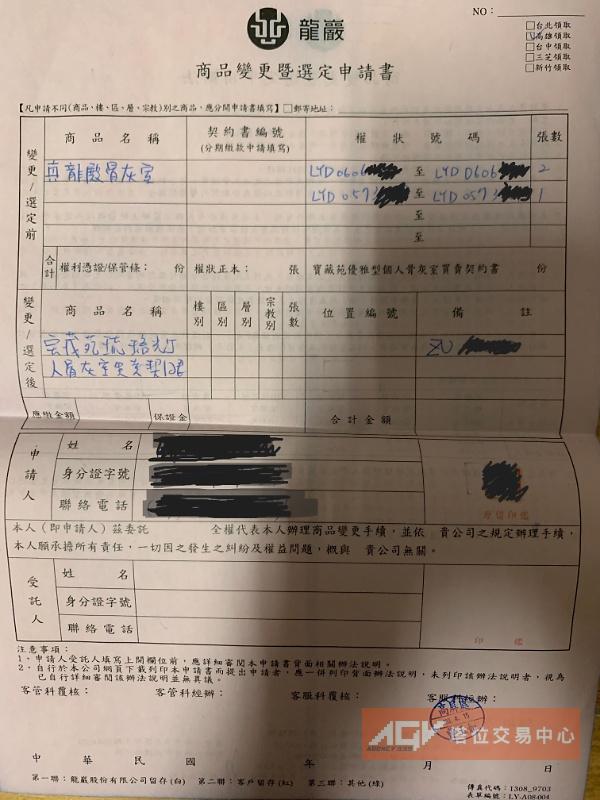 龍巖
NO：
□台北領取
☑高雄領取
□台中領取
□三芝領取
□新竹領取
商品變更暨選定申請書
【凡申請不同(商品、樓、區、層、宗教)別之商品，應分開申請書填寫】□郵寄地址：
變更/選定前
商品名稱
契約書編號
(分期繳款申請填寫)
權狀號碼
張數
真龍殿骨灰室
LYD0606 至 LYD0606 2
LYD0573 至 LYD0573 1
至
至
合計
權利憑證/保管條： 份
權狀正本： 張
寶藏苑優雅型個人骨灰室買賣契約書 份
變更/選定後
商品名稱
樓別
區別
層別
宗教別
張數
位置編號
備註
人骨灰室
ZU
應繳金額
保證金
合計金額
申請人
姓名
身分證字號
聯絡電話
原留印鑑
本人（即申請人）茲委託 全權代表本人辦理商品變更手續，並依 貴公司之規定辦理手續，
本人願承擔所有責任，一切因之發生之糾紛及權益問題，概與 貴公司無關。
受託人
姓名
身分證字號
聯絡電話
印鑑
注意事項：
1、申請人受託人填寫上開欄位前，應詳細審閱本申請書背面相關辦法說明。
2、自行於本公司網頁下載列印本申請書而提出申請者，應一併列印背面辦法說明，未列印該辦法說明者，視為
已自行詳細審閱該辦法說明並無異議。
客管科覆核：
客管科經辦：
客服科覆核：
客服科經辦：
AGK 塔位交易中心
中華民國 年 月 日
第一聯：龍巖股份有限公司留存(白) 第二聯：客戶留存(紅) 第三聯：其他(綠)
傳真代碼：1308_9703
表單編號：LY-A08-004